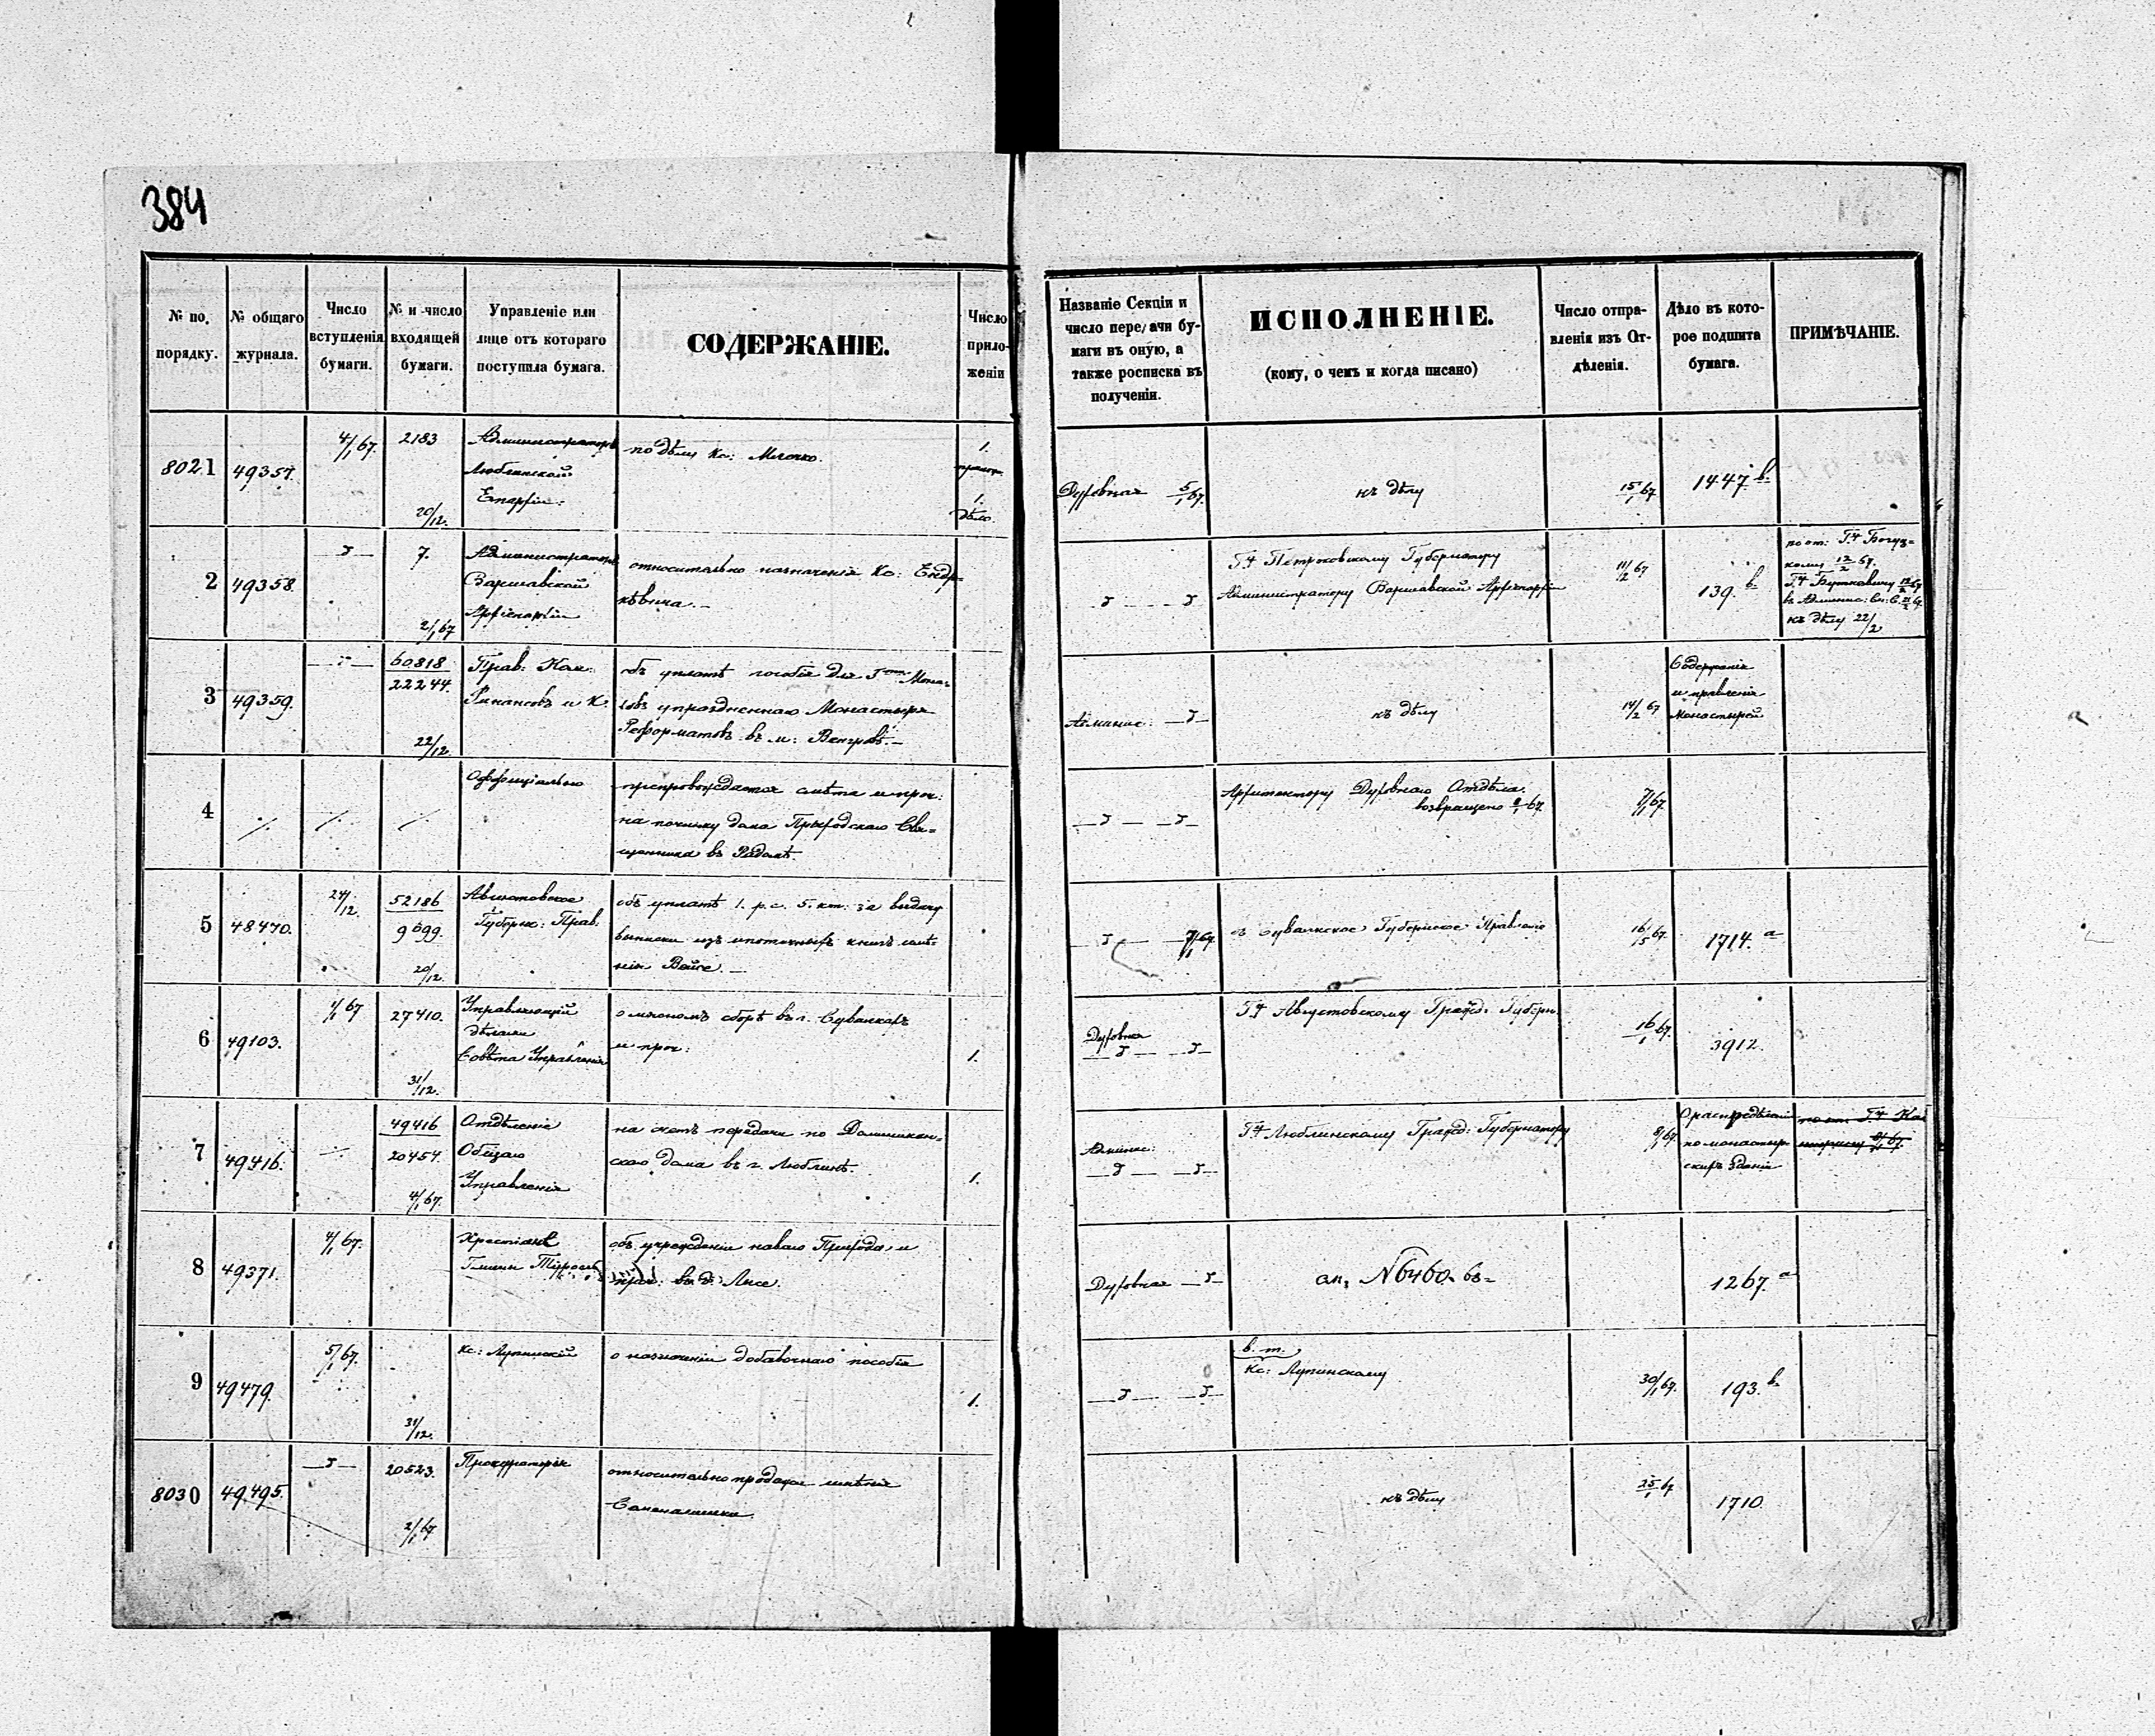 384
№ по порядку.
№ общаго журнала.
Число вступленія бумаги.
№ и число входящей бумаги.
Управленіе или лице отъ котораго поступила бумага.
СОДЕРЖАНІЕ.
Число приложеніи
Названіе Секціи и число передачи бумаги въ оную, а также росписка въ полученіи.
ИСПОЛНЕНІЕ.
(кому, о чемъ и когда писано)
Число отправленія изъ Отдѣленія.
Дѣло въ которое подшита бумага.
ПРИМѢЧАНІЕ.
8021 49357. 4/1 67. 2183 20/12.
Администраторъ
Люблинской
Епархіи.
по дѣлу Кс:
1.
1.
дѣло.
Духовная 5/1 67.
къ дѣлу
15/1 67
1447 b.
2 49358. 7. 2/1 67
Администраторъ
Варшавской
Архіепархіи
относительно назначенія Кс: Ендр=
кѣвича.
Г. Петроковскому Губернатору
Администратору Варшавской Архіепархіи
11/2 67
139. b.
къ дѣлу 22/2
3 49359. 60818 22244. 22/12.
Прав: Ком:
Финансовъ и К.
объ уплатѣ пособія для Мона=
ховъ упраздненнаго Монастыря
Реформатовъ въ м: Венгровѣ.
Админис:
къ дѣлу
14/2 67
Содержанія
и правленія
Монастырей
4
Оффиціально
препровождается смѣта и проч:
на починку дома Приходскаго Свя=
щенника въ Радомѣ.
Архитектору Духовнаго Отдѣла.
возвращено 67.
7/1 67.
5 48470. 24/12. 52186 9699. 20/12.
Августовское
Губерн: Прав:
объ уплатѣ 1. р. с. 5. кп: за выдачу
выписки изъ ипотечныхъ книгъ имѣ=
нія Войсе.
7/1 67.
Сувалкское Губернское Правленіе
16/5 67.
1714. a
6 49103. 1/1 67 27410. 31/12.
Управляющій
дѣлами
Совѣта Управленія
о мясномъ сборѣ въ г. Сувалкахъ
и проч:
1.
Духовная
Г. Августовскому Гражд: Губерн.
16/1 67.
3912.
7 49416. 49416 20454. 4/1 67.
Отдѣленіе
Общаго
Управленія
на счетъ передачи по Доминикан=
скаго дома въ г. Люблинѣ.
1.
Админис:
Г. Люблинскому Гражд: Губернатору
8/1 67.
О распредѣленіи
по монастыр=
скихъ зданій
8 49371. 4/1 67.
Крестьяне
Гмины
объ учрежденіи новаго Прихода и
проч: въ д: Лисе.
Духовная
№ 6460.
1267. a
9 49479. 5/1 67. 31/12.
Кс: Лупинскій
о назначеніи добавочнаго пособія
1.
в. т.
Кс: Лупинскому
30/1 67.
193. b.
8030 49495. 20523. 2/1 67
Прокураторія
относительно продажи имѣнія
къ дѣлу
25/1 67
1710.